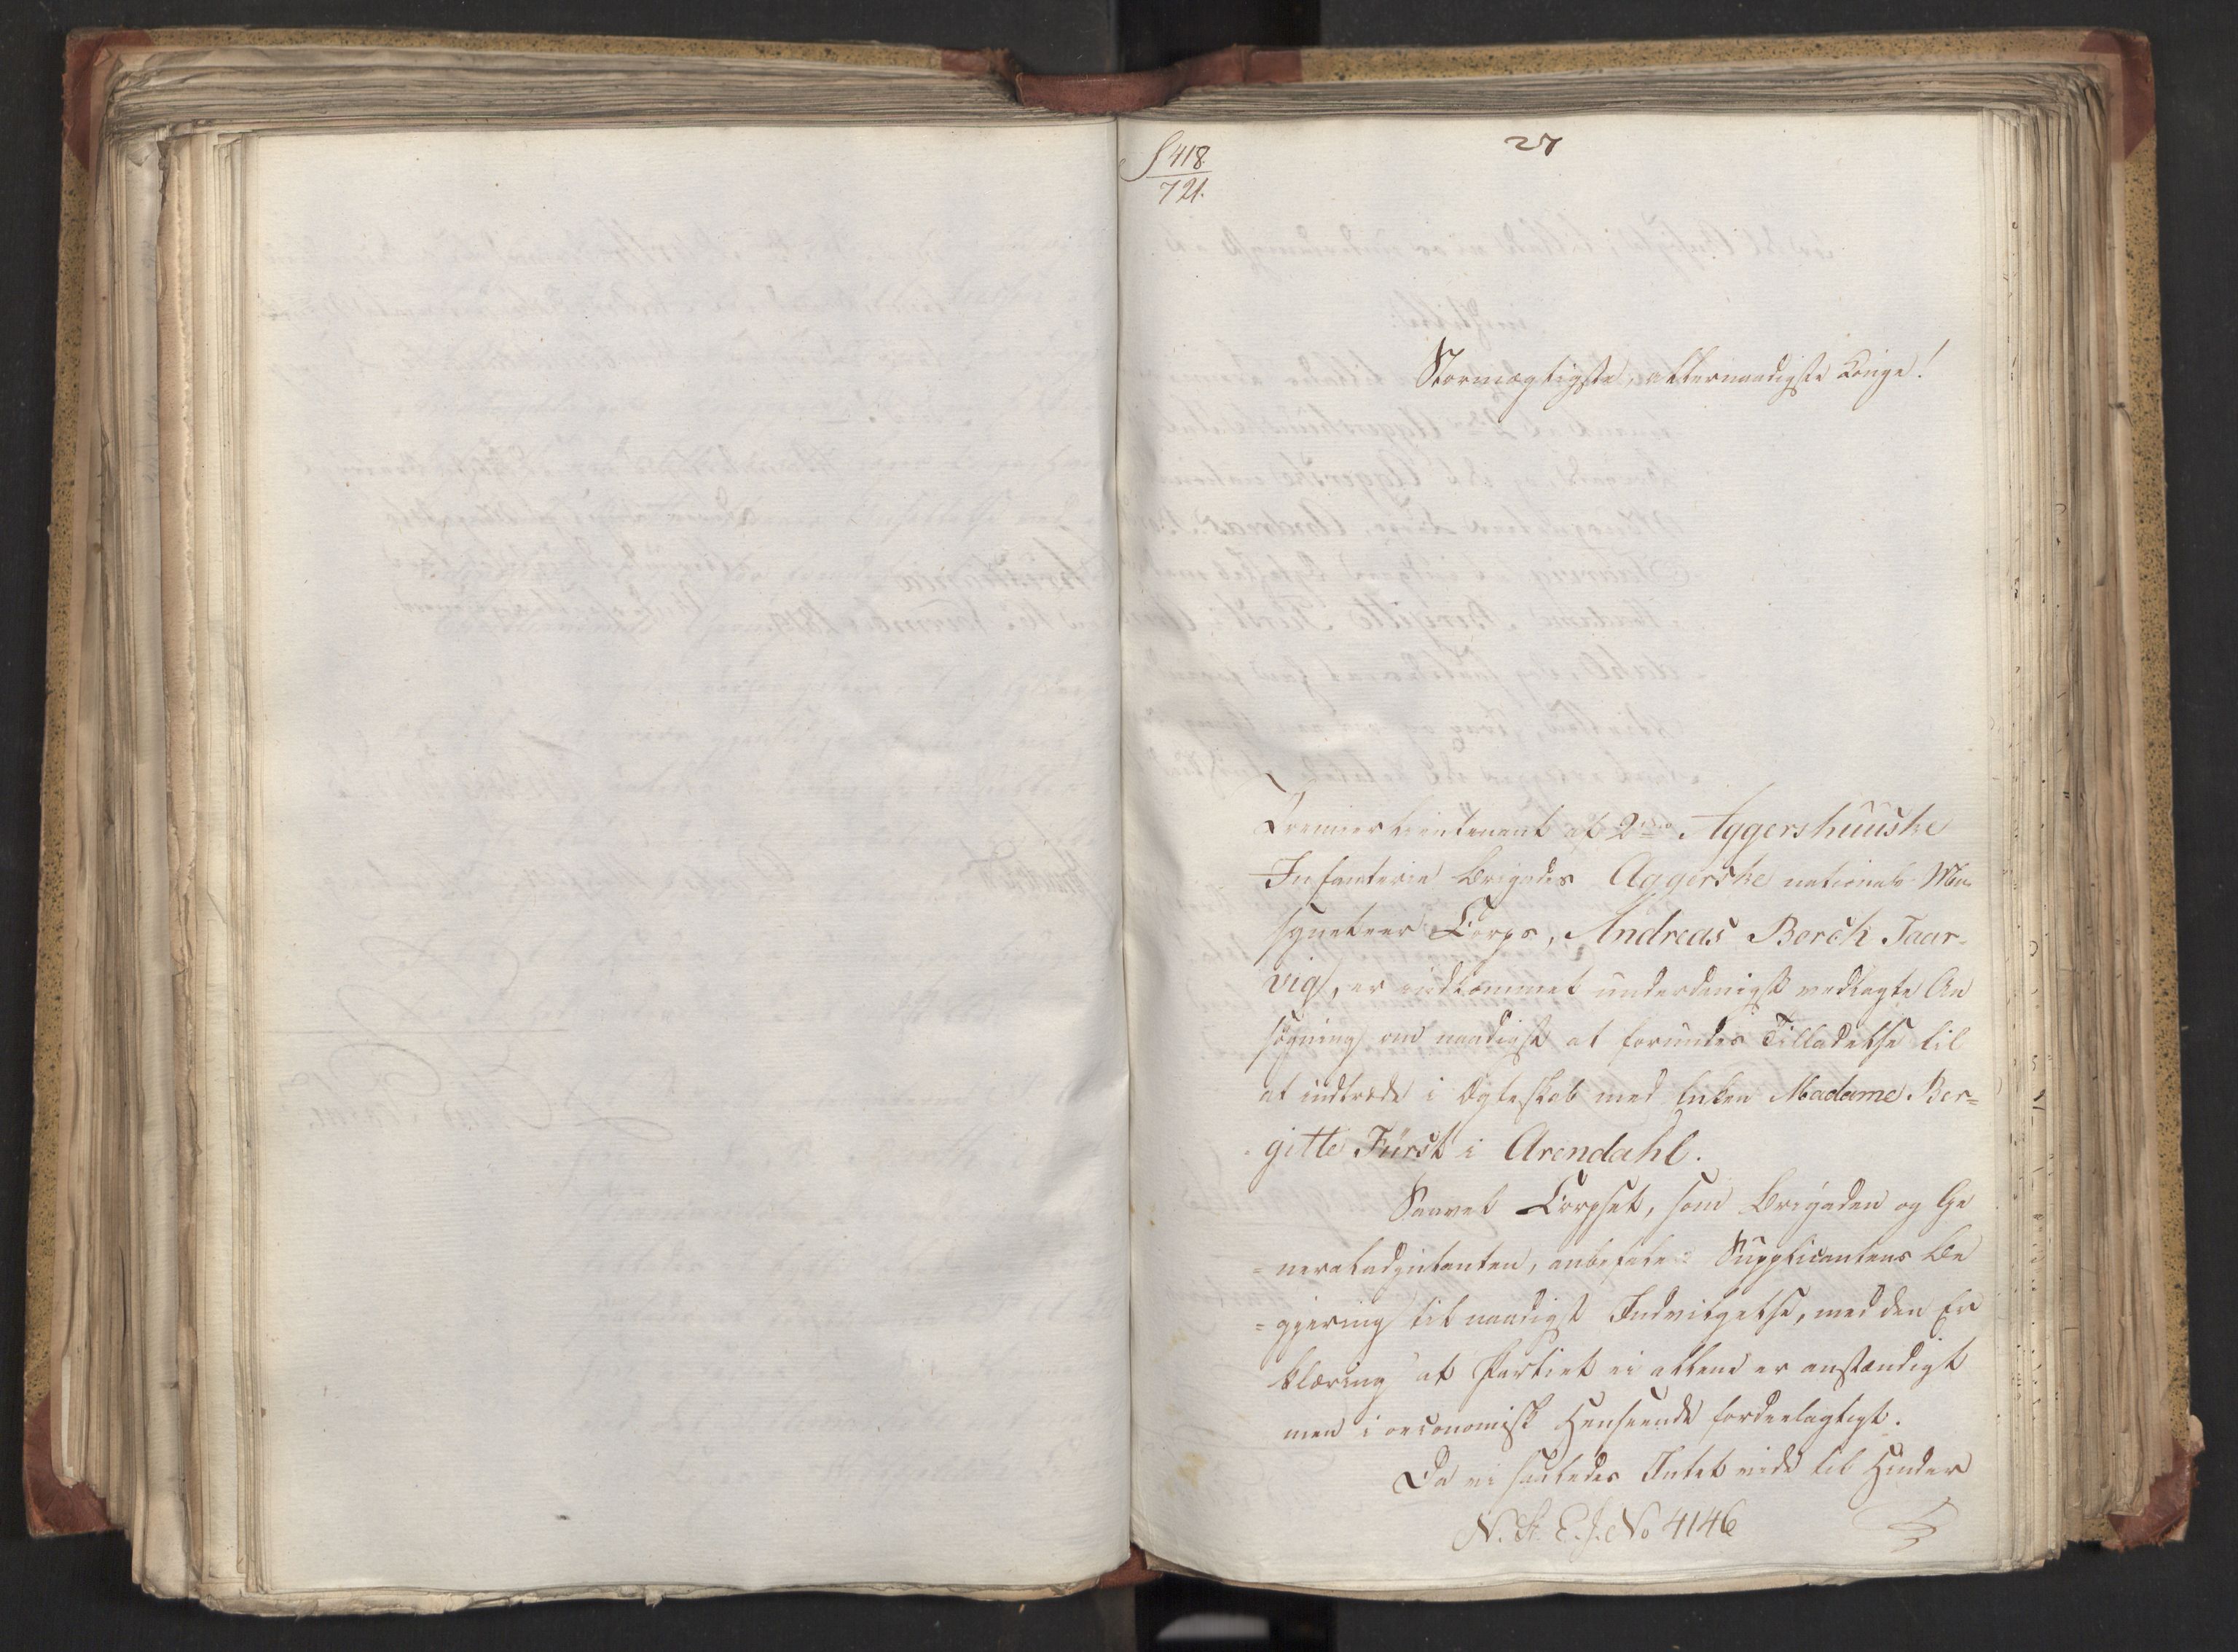 27
S 418.
721.
Stormægtigste, allernaadigste Konge!
Premierlieutenant af 2den Aggershuuske
Infanterie Brigades Aggerske national Mu-
squeteer Corps, Andreas Borch Taar-
vig, er indkommet underdanigst vedlagte An
søgning om naadigst at forundes Tilladelse til
at indtræde i Ægteskab med Enken Madame Ber=
gitte Fürst i Arendahl.
Saavel Corpset, som Brigaden og Ge
=neraladjutanten, anbefale Supplicantens Be
=gjering til naadigst Indvilgelse, med den Er
klæring at Partiet ei allene er anstændigt
men i oeconomisk Henseende fordeelagtigt.
Da vi saaledes Intet vide til Hinder
N. St. E. J. No 4146